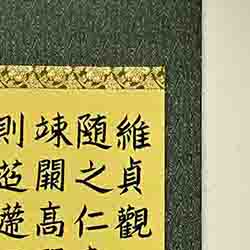 維貞觀
隨之仁
竦闕高
則迢遰